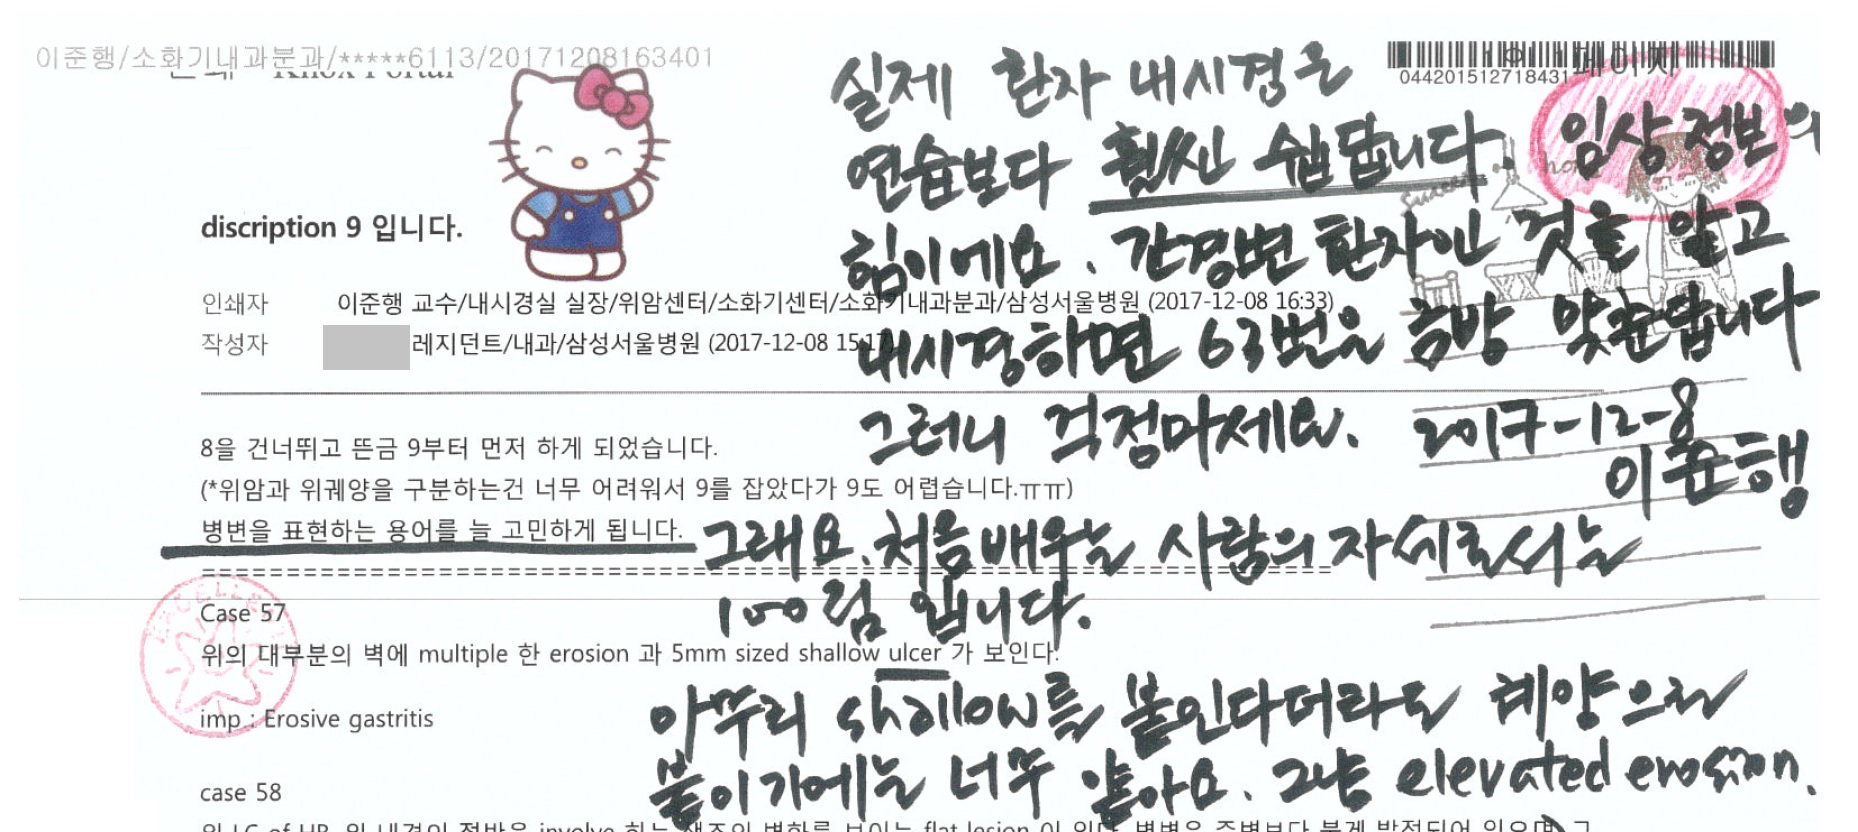 이준행/소화기내과분과/*****6113/20171208163401
인쇄 Knox Portal
1의 페이지
04420151271843
discription 9 입니다.
인쇄자 이준행 교수/내시경실 실장/위암센터/소화기센터/소화기내과분과/삼성서울병원 (2017-12-08 16:33)
작성자 레지던트/내과/삼성서울병원 (2017-12-08 15:17)
실제 환자 내시경은
연습보다 훨씬 쉽답니다. 임상정보의
힘이에요. 간경변 환자인 것을 알고
내시경하면 63번은 금방 맞춘답니다
그러니 걱정마세요. 2017-12-8
이준행
8을 건너뛰고 뜬금 9부터 먼저 하게 되었습니다.
(*위암과 위궤양을 구분하는건 너무 어려워서 9를 잡았다가 9도 어렵습니다.ㅠㅠ)
병변을 표현하는 용어를 늘 고민하게 됩니다.
그래요. 처음 배우는 사람의 자세로서는
100점 입니다.
EXCELLENT
Case 57
위의 대부분의 벽에 multiple 한 erosion 과 5mm sized shallow ulcer 가 보인다.
imp : Erosive gastritis
아무리 shallow를 붙인다더라도 궤양으로
붙이기에는 너무 얕아요. 그냥 elevated erosion.
case 58
위 LC of HB, 위 내경의 절반을 involve 하는 색조의 변화를 보이는 flat lesion 이 있다. 병변은 주변보다 붉게 발적되어 있으며 그